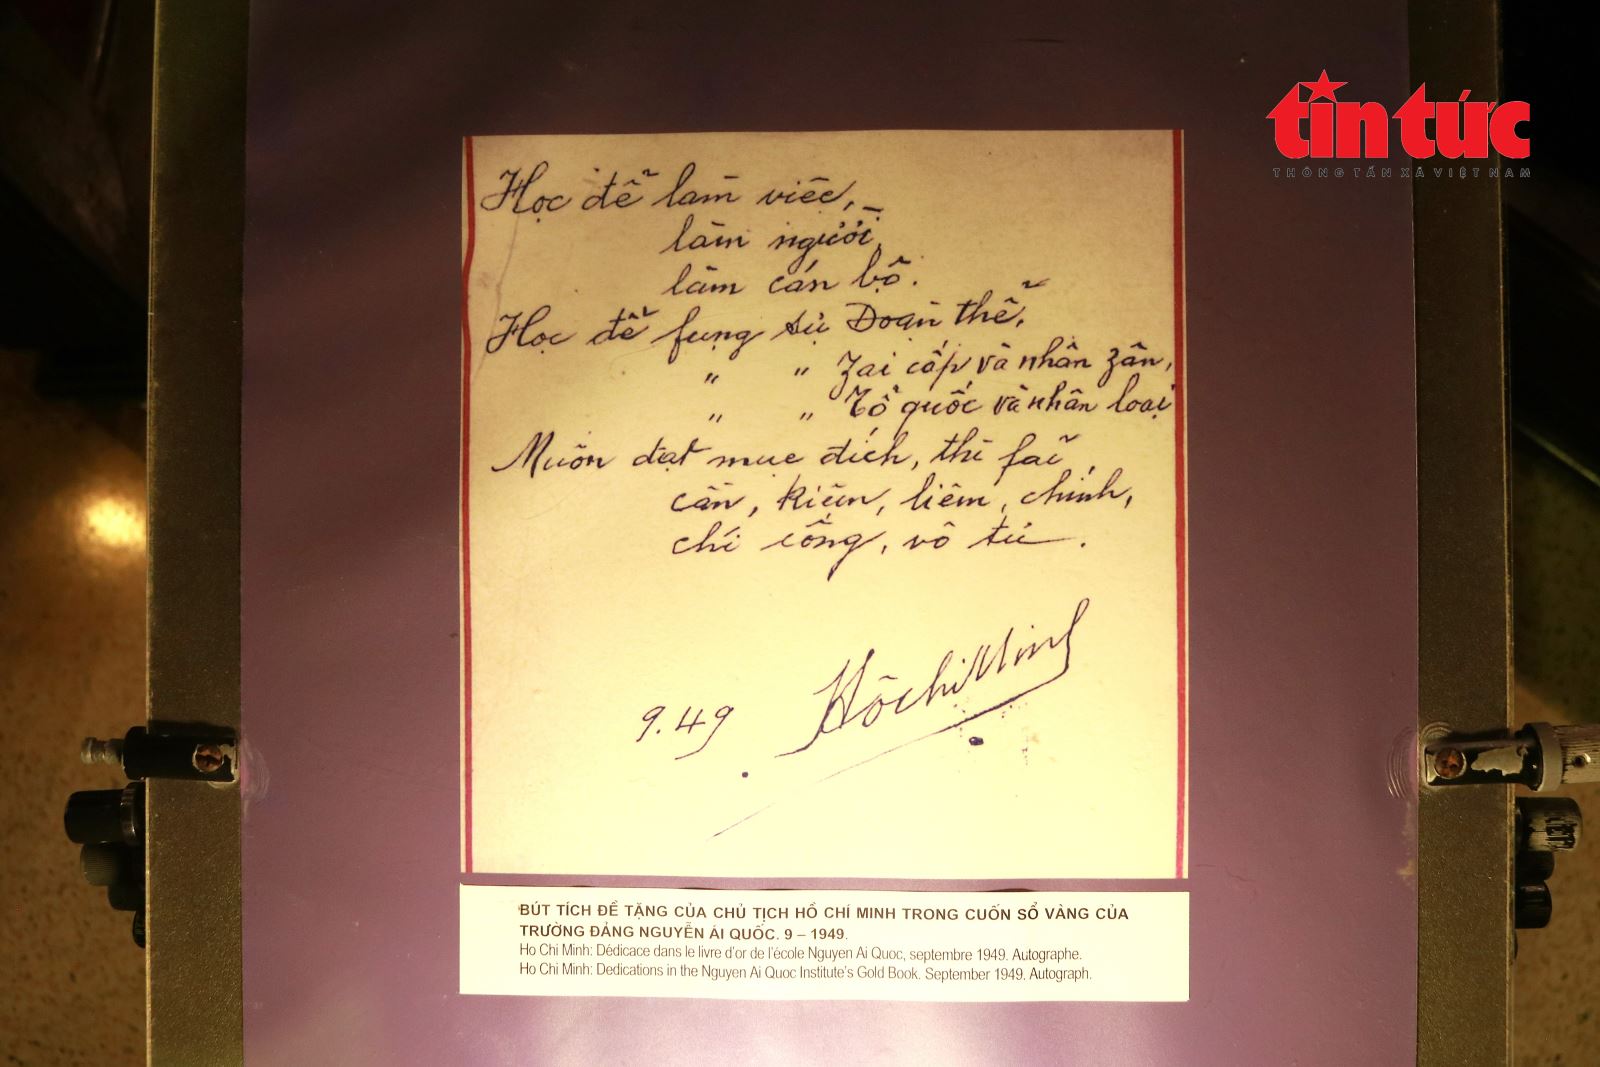 tin tức
THÔNG TẤN XÃ VIỆT NAM
Học để làm việc,
làm người,
làm cán bộ.
Học để fụng sự Đoàn thể,
" " Zai cấp và nhân zân,
" " Tổ quốc và nhân loại
Muốn đạt mục đích, thì fải
cần, kiệm, liêm, chính,
chí công, vô tư.
9.49 HồchíMinh
BÚT TÍCH ĐỀ TẶNG CỦA CHỦ TỊCH HỒ CHÍ MINH TRONG CUỐN SỔ VÀNG CỦA
TRƯỜNG ĐẢNG NGUYỄN ÁI QUỐC. 9 – 1949.
Ho Chi Minh: Dédicace dans le livre d'or de l'école Nguyen Ai Quoc, septembre 1949. Autographe.
Ho Chi Minh: Dedications in the Nguyen Ai Quoc Institute's Gold Book. September 1949. Autograph.